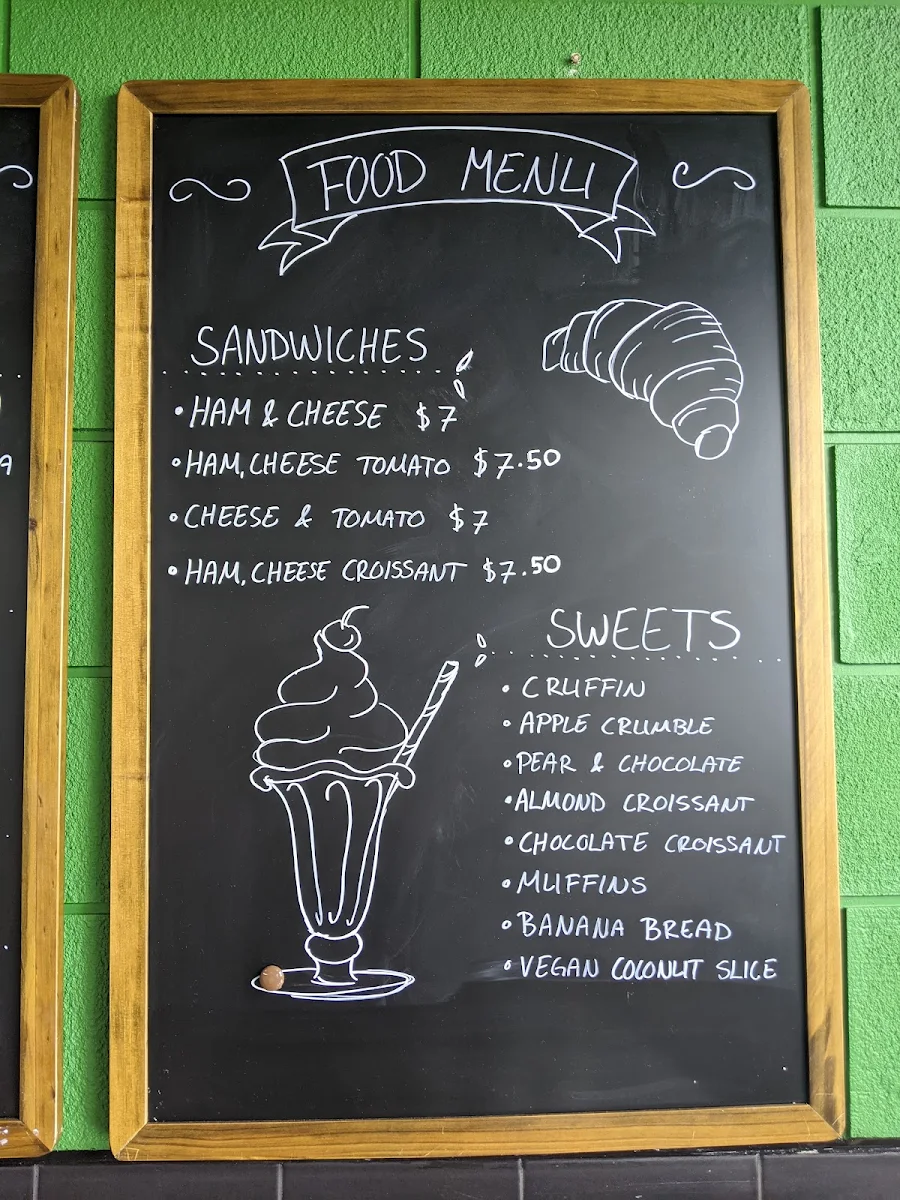 FOOD MENU
SANDWICHES
• HAM & CHEESE $7
• HAM, CHEESE TOMATO $7.50
• CHEESE & TOMATO $7
• HAM, CHEESE CROISSANT $7.50
SWEETS
• CRUFFIN
• APPLE CRUMBLE
• PEAR & CHOCOLATE
• ALMOND CROISSANT
• CHOCOLATE CROISSANT
• MUFFINS
• BANANA BREAD
• VEGAN COCONUT SLICE